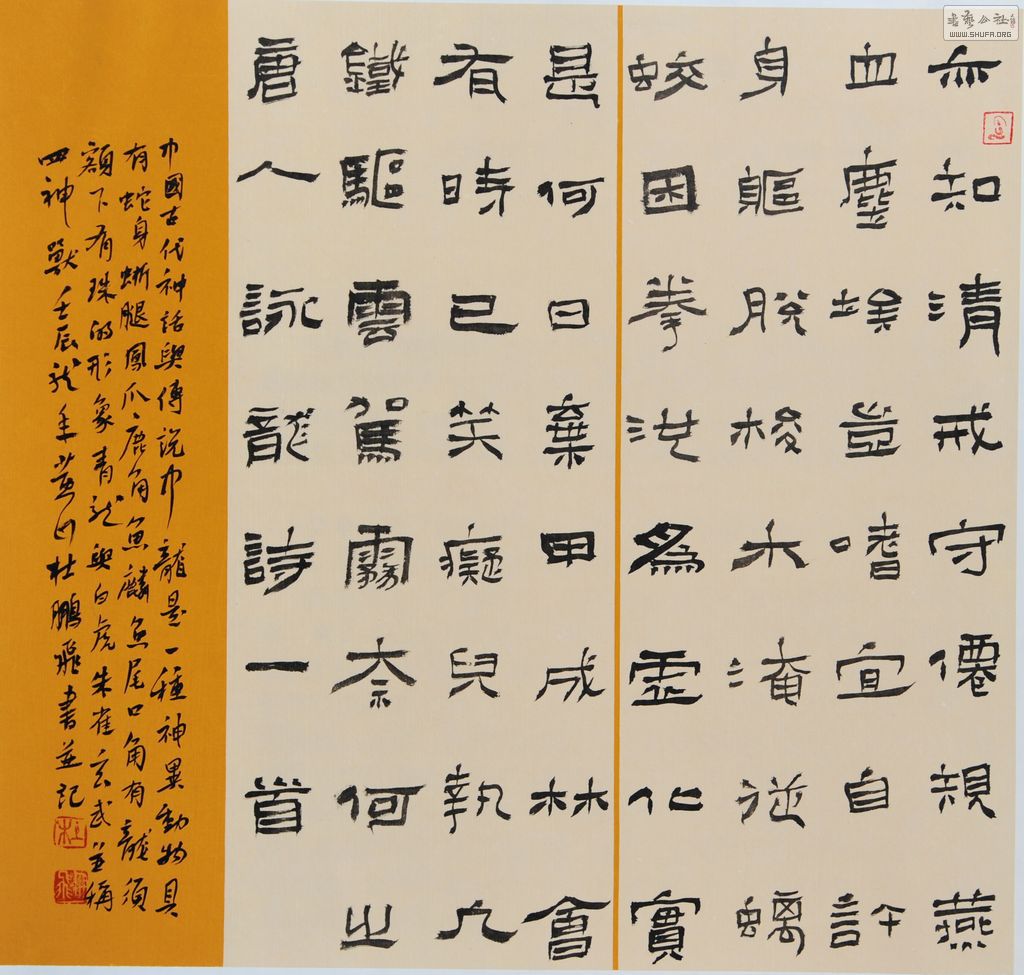 知清戒守僊規燕
血塵埃豈嗜宜自許
身軀脱梭木淹逆螭
蛟困拳洪爲靈化實
是何日棄甲成林會
有時已笑癡兒執凡
鐵驅雲駕霧奈何之
唐人詠龍詩一首
中國古代神話與傳説中龍是一種神異動物具
有蛇身蜥腿鳳爪鹿角魚鱗魚尾口角有龍須
額下有珠的形象青龍與白虎朱雀玄武並稱
四神獸壬辰龍年杜鵬飛書並記
杜
書藝公社
WWW.SHUFA.ORG